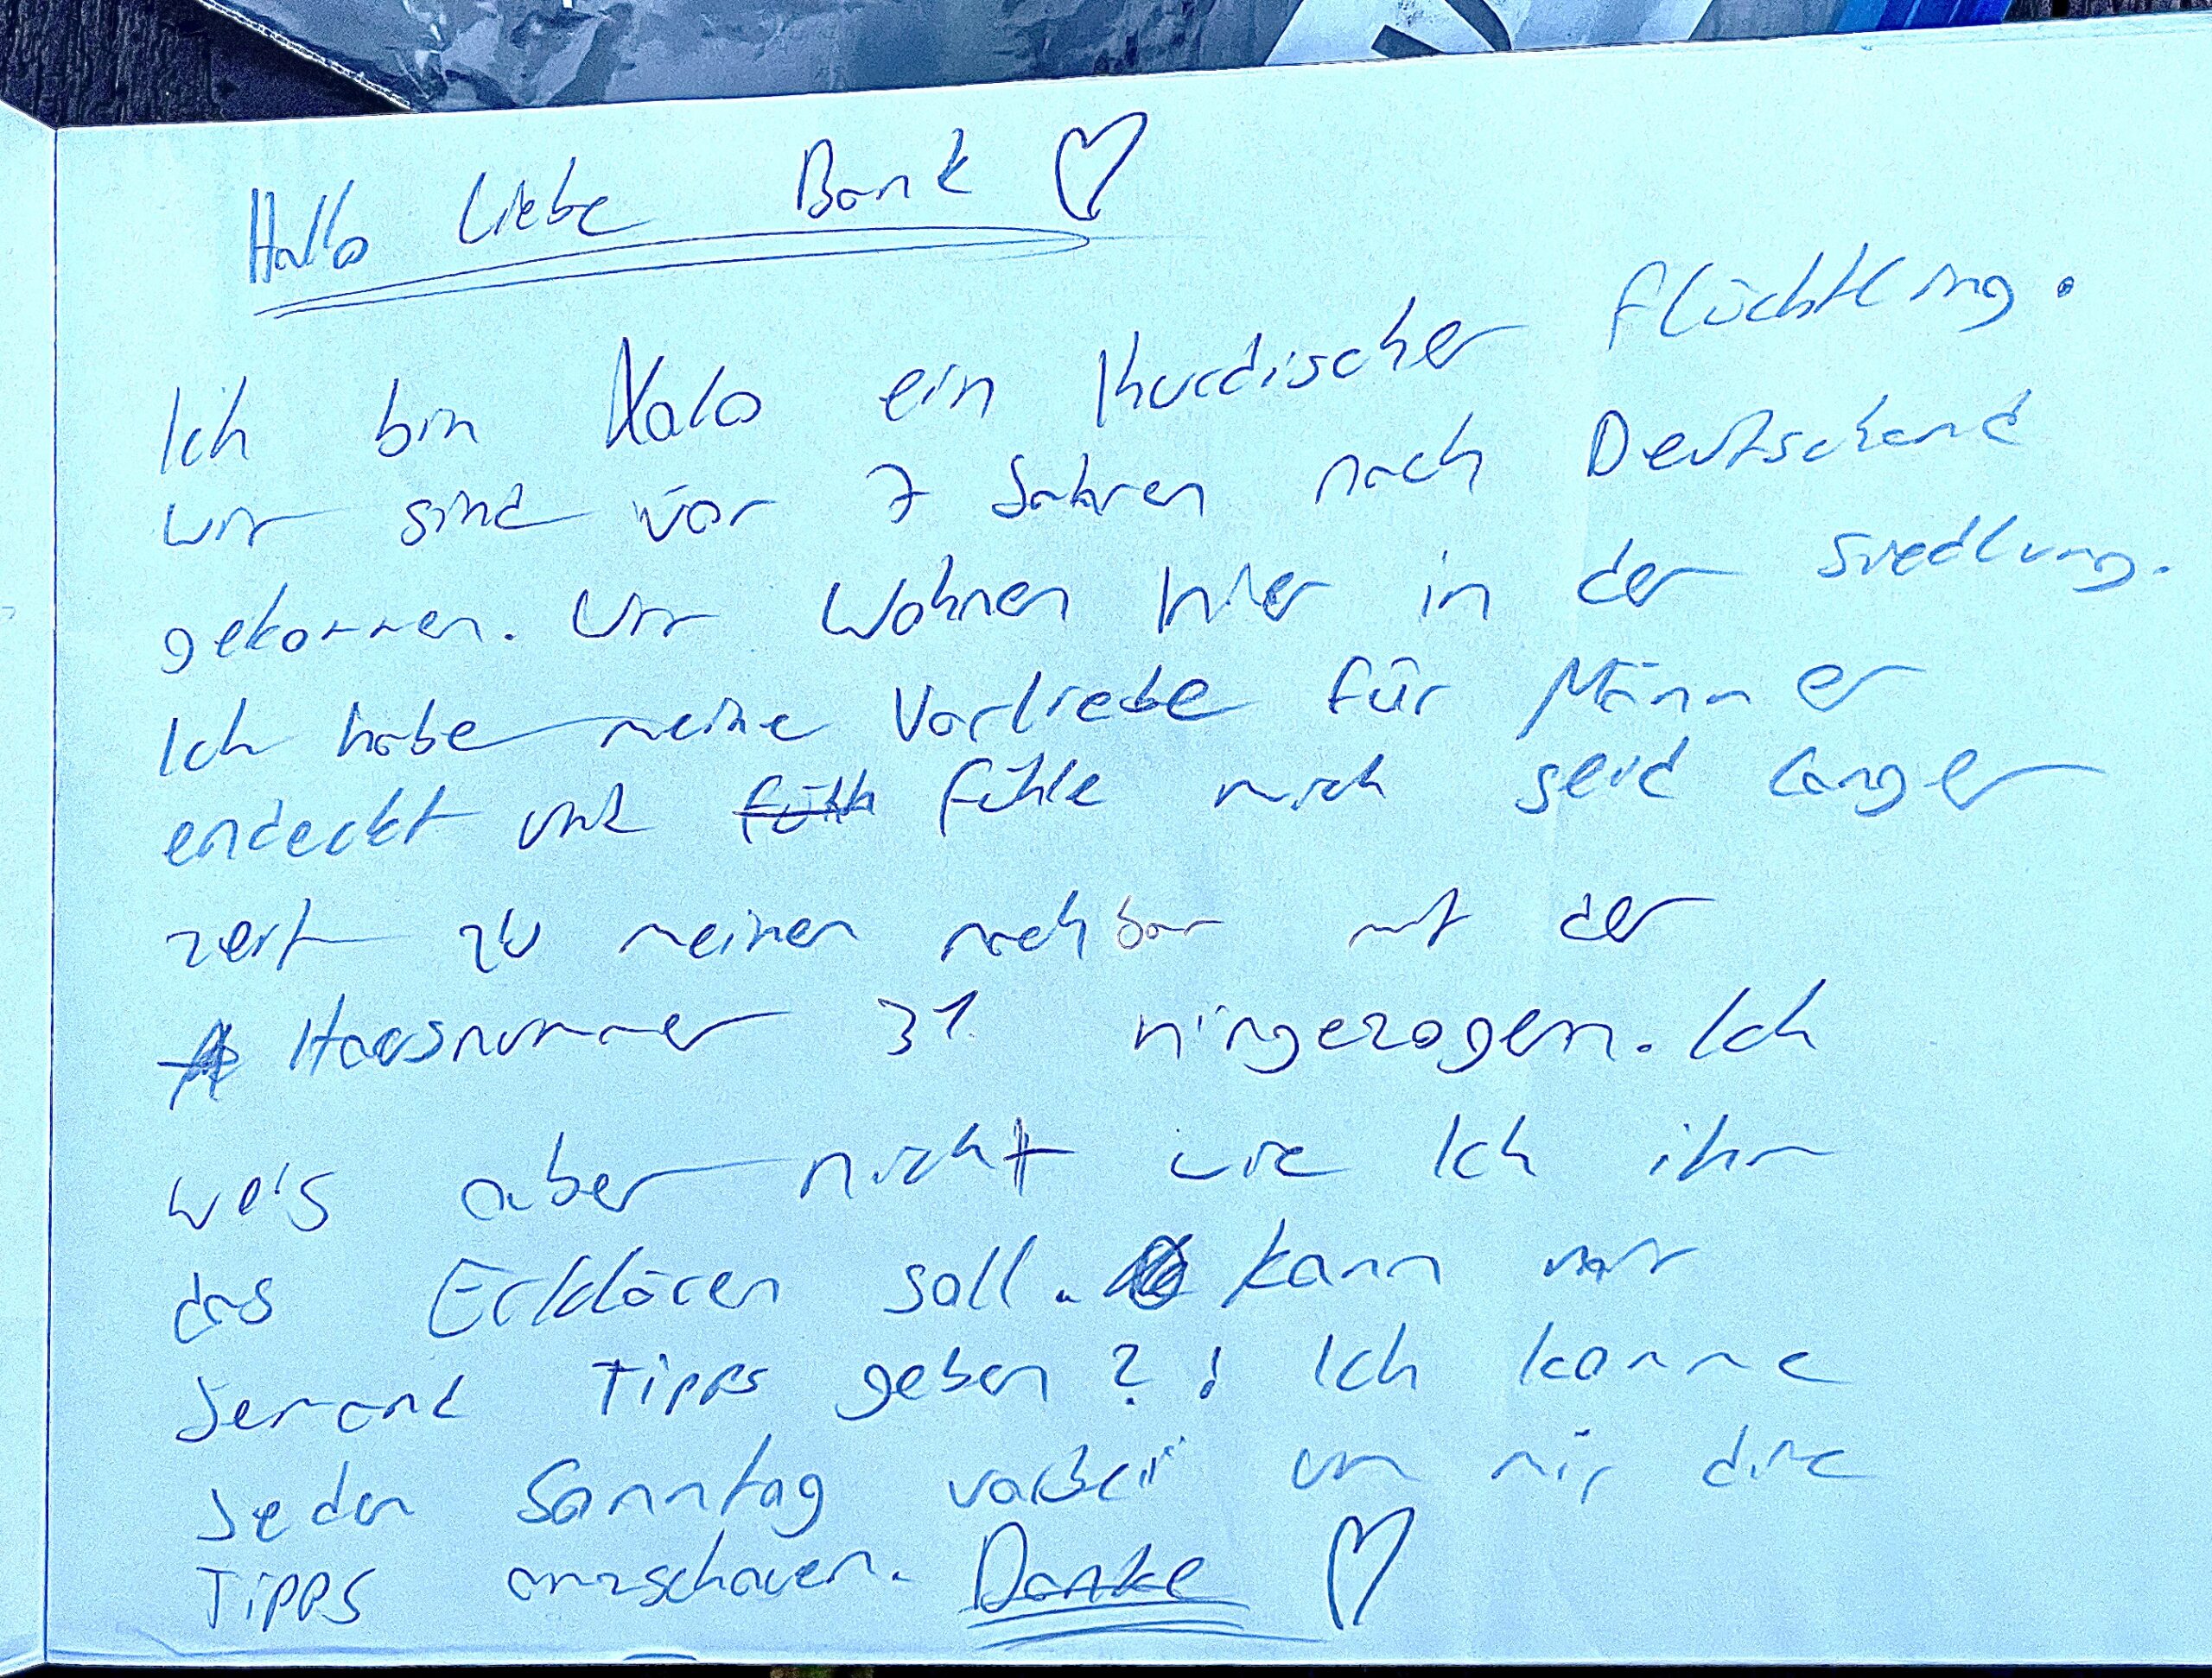 Hallo Liebe Bank ♡
Ich bin Xalo ein Kurdischer flüchtling.
wir sind vor 7 Jahren nach Deutschand
gekommen. Wir Wohnen hier in der siedlung.
Ich habe meine Vorliebe für Männer
endeckt und fühle mich seid langer
zeit zu meinen nachbar mit der
Hausnummer 31 hingezogen. Ich
weis aber nicht wie Ich ihm
das Erklären soll. kann mir
Jemand Tipps geben?! Ich komme
Jeden Sonntag vorbei um mir die
Tipps anzschauen. Danke ♡